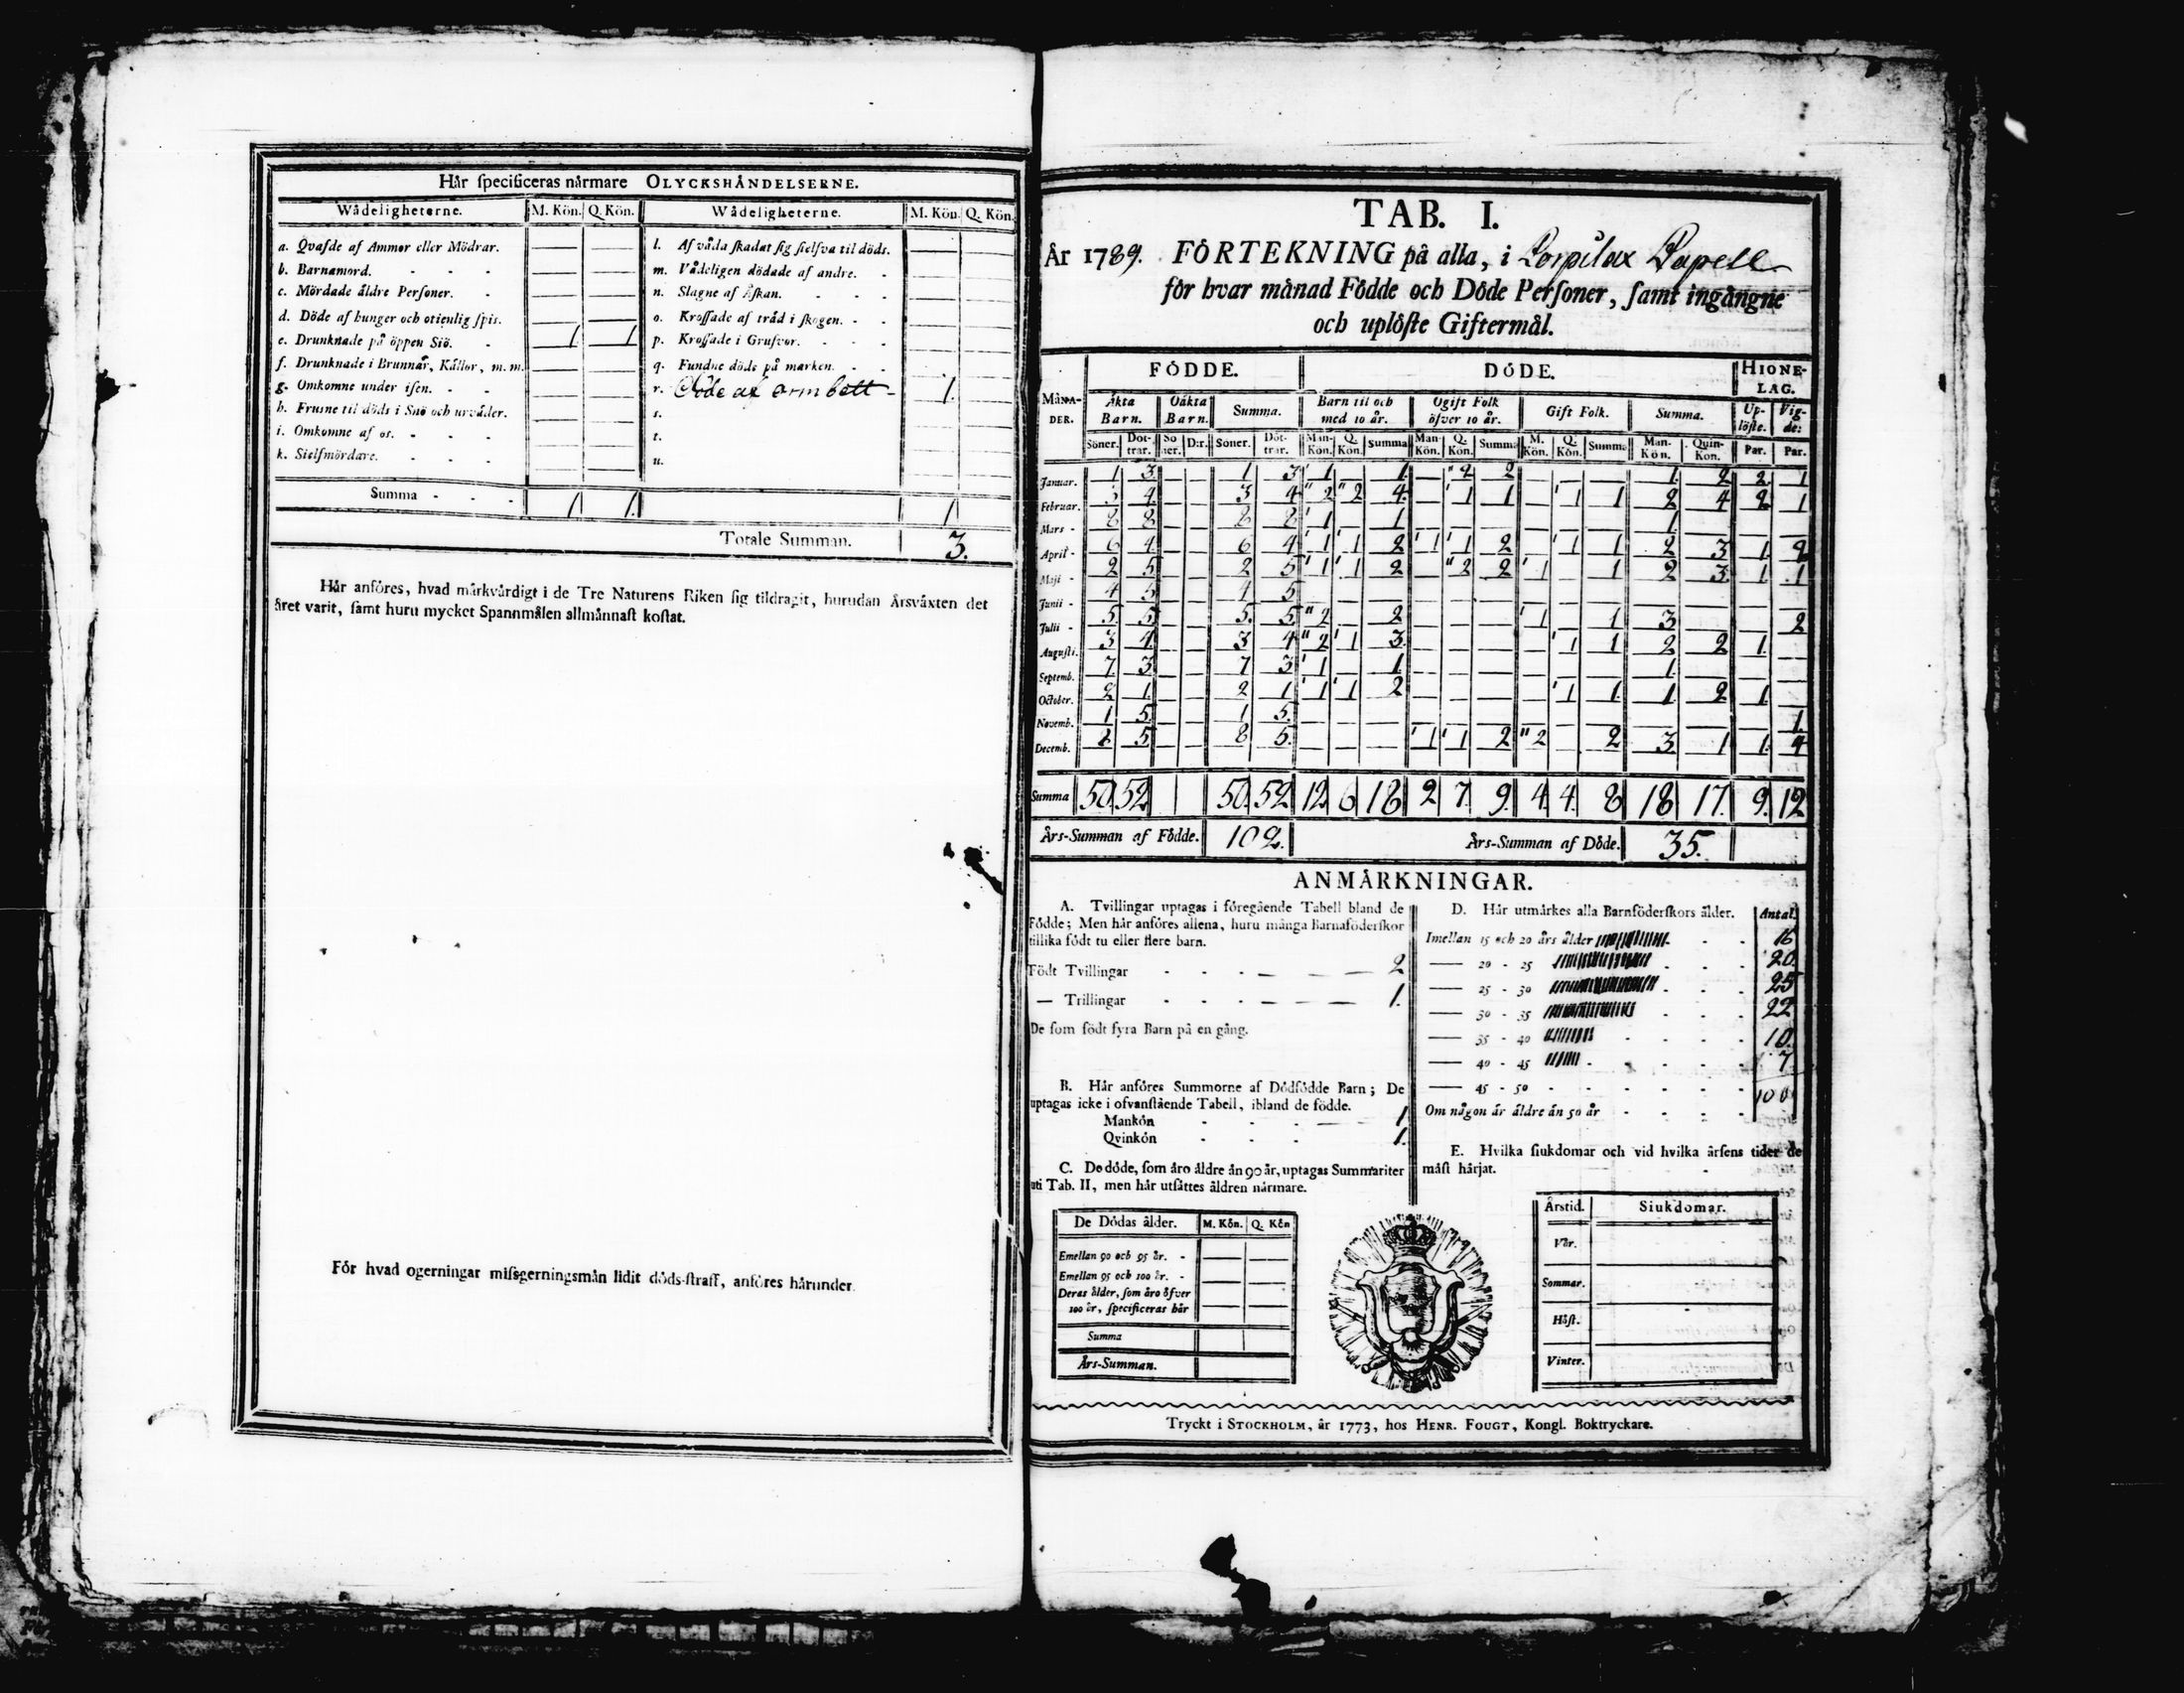 Hår specificeras nårmare OLYCKSHÅNDELSERNE.
Wådeligheterne. M. Kön. Q. Kön. Wådeligheterne. M. Kön. Q. Kön.
a. Qvafde af Ammor eller Mödrar. — — l. Af våda skadat sig sielfva til döds. — —
b. Barnamord. — — m. Vådeligen dödade af andre. — —
c. Mördade åldre Personer. — — n. Slagne af Åskan. — —
d. Döde af hunger och otienlig spis. — — o. Krossade af tråd i skogen. — —
e. Drunknade på öppen Siö. 1. 1. p. Krossade i Grufvor. — —
f. Drunknade i Brunnar, Kållor, m. m. — — q. Fundne döde på marken. — —
g. Omkomne under isen. — — r. Döde af ormbett 1.
h. Frusne til döds i Snö och urvåder. — — s.
i. Omkomne af os. — — t.
k. Sielfmördare. — — u.
Summa 1. 1. 1
Totale Summan. 3.
Hår anföres, hvad mårkvårdigt i de Tre Naturens Riken sig tildragit, hurudan Årsvåxten det
året varit, samt huru mycket Spannmålen allmånnast kostat.
För hvad ogerningar missgerningsmån lidit döds-straff, anföres hårunder.
TAB. I.
År 1789. FÖRTEKNING på alla, i Capell
för hvar månad Födde och Döde Personer, samt ingångne
och uplöste Giftermål.
FÖDDE. DÖDE. HIONE-
LAG.
MÅNA-
DER. Åkta
Barn. Oåkta
Barn. Summa. Barn til och
med 10 år. Ogift Folk
öfver 10 år. Gift Folk. Summa. Up-
löste. Vig-
de:
Söner. Döt-
trar. Sö
ner. D:r. Söner. Döt-
trar. Man-
Kön. Q.
Kön. Summa Man-
Kön. Q.
Kön. Summa M.
Kön. Q.
Kön. Summa Man-
Kön. Quin-
Kön. Par. Par.
Januar. 1 3 — — 1 3 1 — 1. — 2 2 — — — 1. 2 2 1
Februar. 3 4 — — 3 4 2 2 4 — 1 1 — 1 1 2 4 2 1
Mars 8 8 — — 8 8 1 — 1 — — — — — — 1. — — —
April 6 4 — — 6 4 1 1 2 1 1 2 — 1 1 2 3 1. 2
Maji 2 5 — — 2 5 1 1 2 — 2 2 1 — 1 2 3 1 1
Junii 4 5 — — 4 5 — — — — — — — — — — — — —
Julii 5 5 — — 5 5 2 — 2 — — — 1 — 1 3 — — 2
Augusti. 3 4 — — 3 4 2 1 3 — — — — 1 1 2 2 1. —
Septemb. 7 3 — — 7 3 1 — 1. — — — — — — 1. — — —
October. 2 1 — — 2 1 1 1 2 — — — — 1 1. 1 2 1 —
Novemb. 1 5 — — 1 5 — — — — — — — — — — — — 1.
Decemb. 8 5 — — 8 5. — — — 1 1 2 2 — 2 3 1 1. 4
Summa 50. 52 50. 52 12 6 18 2 7. 9. 4. 4. 8 18 17. 9. 12
Års-Summan af Födde. 102. Års-Summan af Döde. 35.
ANMÅRKNINGAR.
A. Tvillingar uptagas i föregående Tabell bland de
Födde; Men hår anföres allena, huru många Barnaföderskor
tillika födt tu eller flere barn.
Födt Tvillingar 2
— Trillingar 1.
De som födt fyra Barn på en gång.
B. Hår anföres Summorne af Dödfödde Barn; De
uptagas icke i ofvanstående Tabell, ibland de födde.
Mankön 1
Qvinkön 1.
C. De döde, som åro åldre ån 90 år, uptagas Summariter
uti Tab. II, men hår utsåttes åldren nårmare.
De Dödas ålder. M. Kön. Q. Kön
Emellan 90 och 95 år. — —
Emellan 95 och 100 år. — —
Deras ålder, som åro öfver
100 år, specificeras hår — —
Summa
Års-Summan.
D. Hår utmårkes alla Barnföderskors ålder. Antal.
Imellan 15 och 20 års ålder 16
— 20 - 25 20.
— 25 - 30 25
— 30 - 35 22
— 35 - 40 10.
— 40 - 45 7
— 45 - 50
Om någon år åldre ån 50 år 100
E. Hvilka siukdomar och vid hvilka årsens tider de
måst hårjat.
Årstid. Siukdomar.
Vår.
Sommar.
Höst.
Vinter.
Tryckt i STOCKHOLM, år 1773, hos HENR. FOUGT, Kongl. Boktryckare.